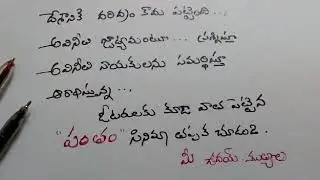 దేశానికి దరిద్రం కాదు పట్టింది ...
అవినీతి జాడ్యమంటూ .. ప్రశ్నిస్తూ
అవినీతి నాయకులను సమర్థిస్తూ
ఆరాధిస్తున్న ...
ఓటరులకు కూడా వాత పెట్టిన
"పంతం" సినిమా తప్పక చూడండి.
మీ ఉదయ్